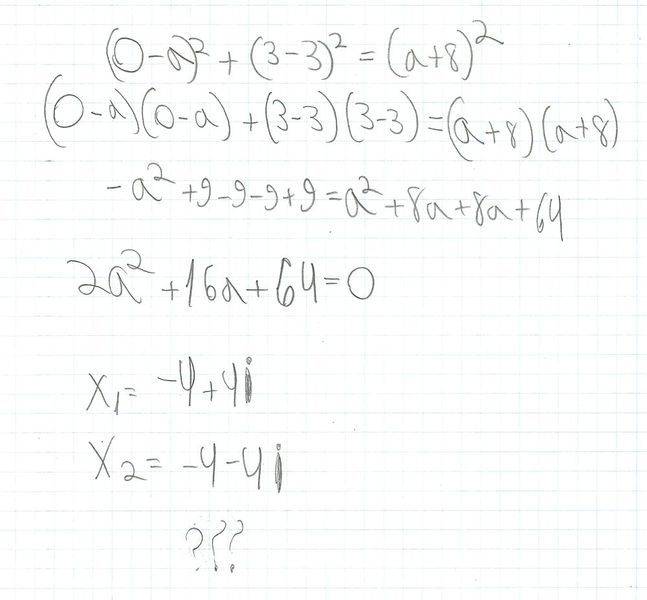 (0-a)² + (3-3)² = (a+8)²
(0-a)(0-a) + (3-3)(3-3) = (a+8)(a+8)
-a² + 9 - 9 - 9 + 9 = a² + 8a + 8a + 64
2a² + 16a + 64 = 0
x₁ = -4 + 4i
x₂ = -4 - 4i
???